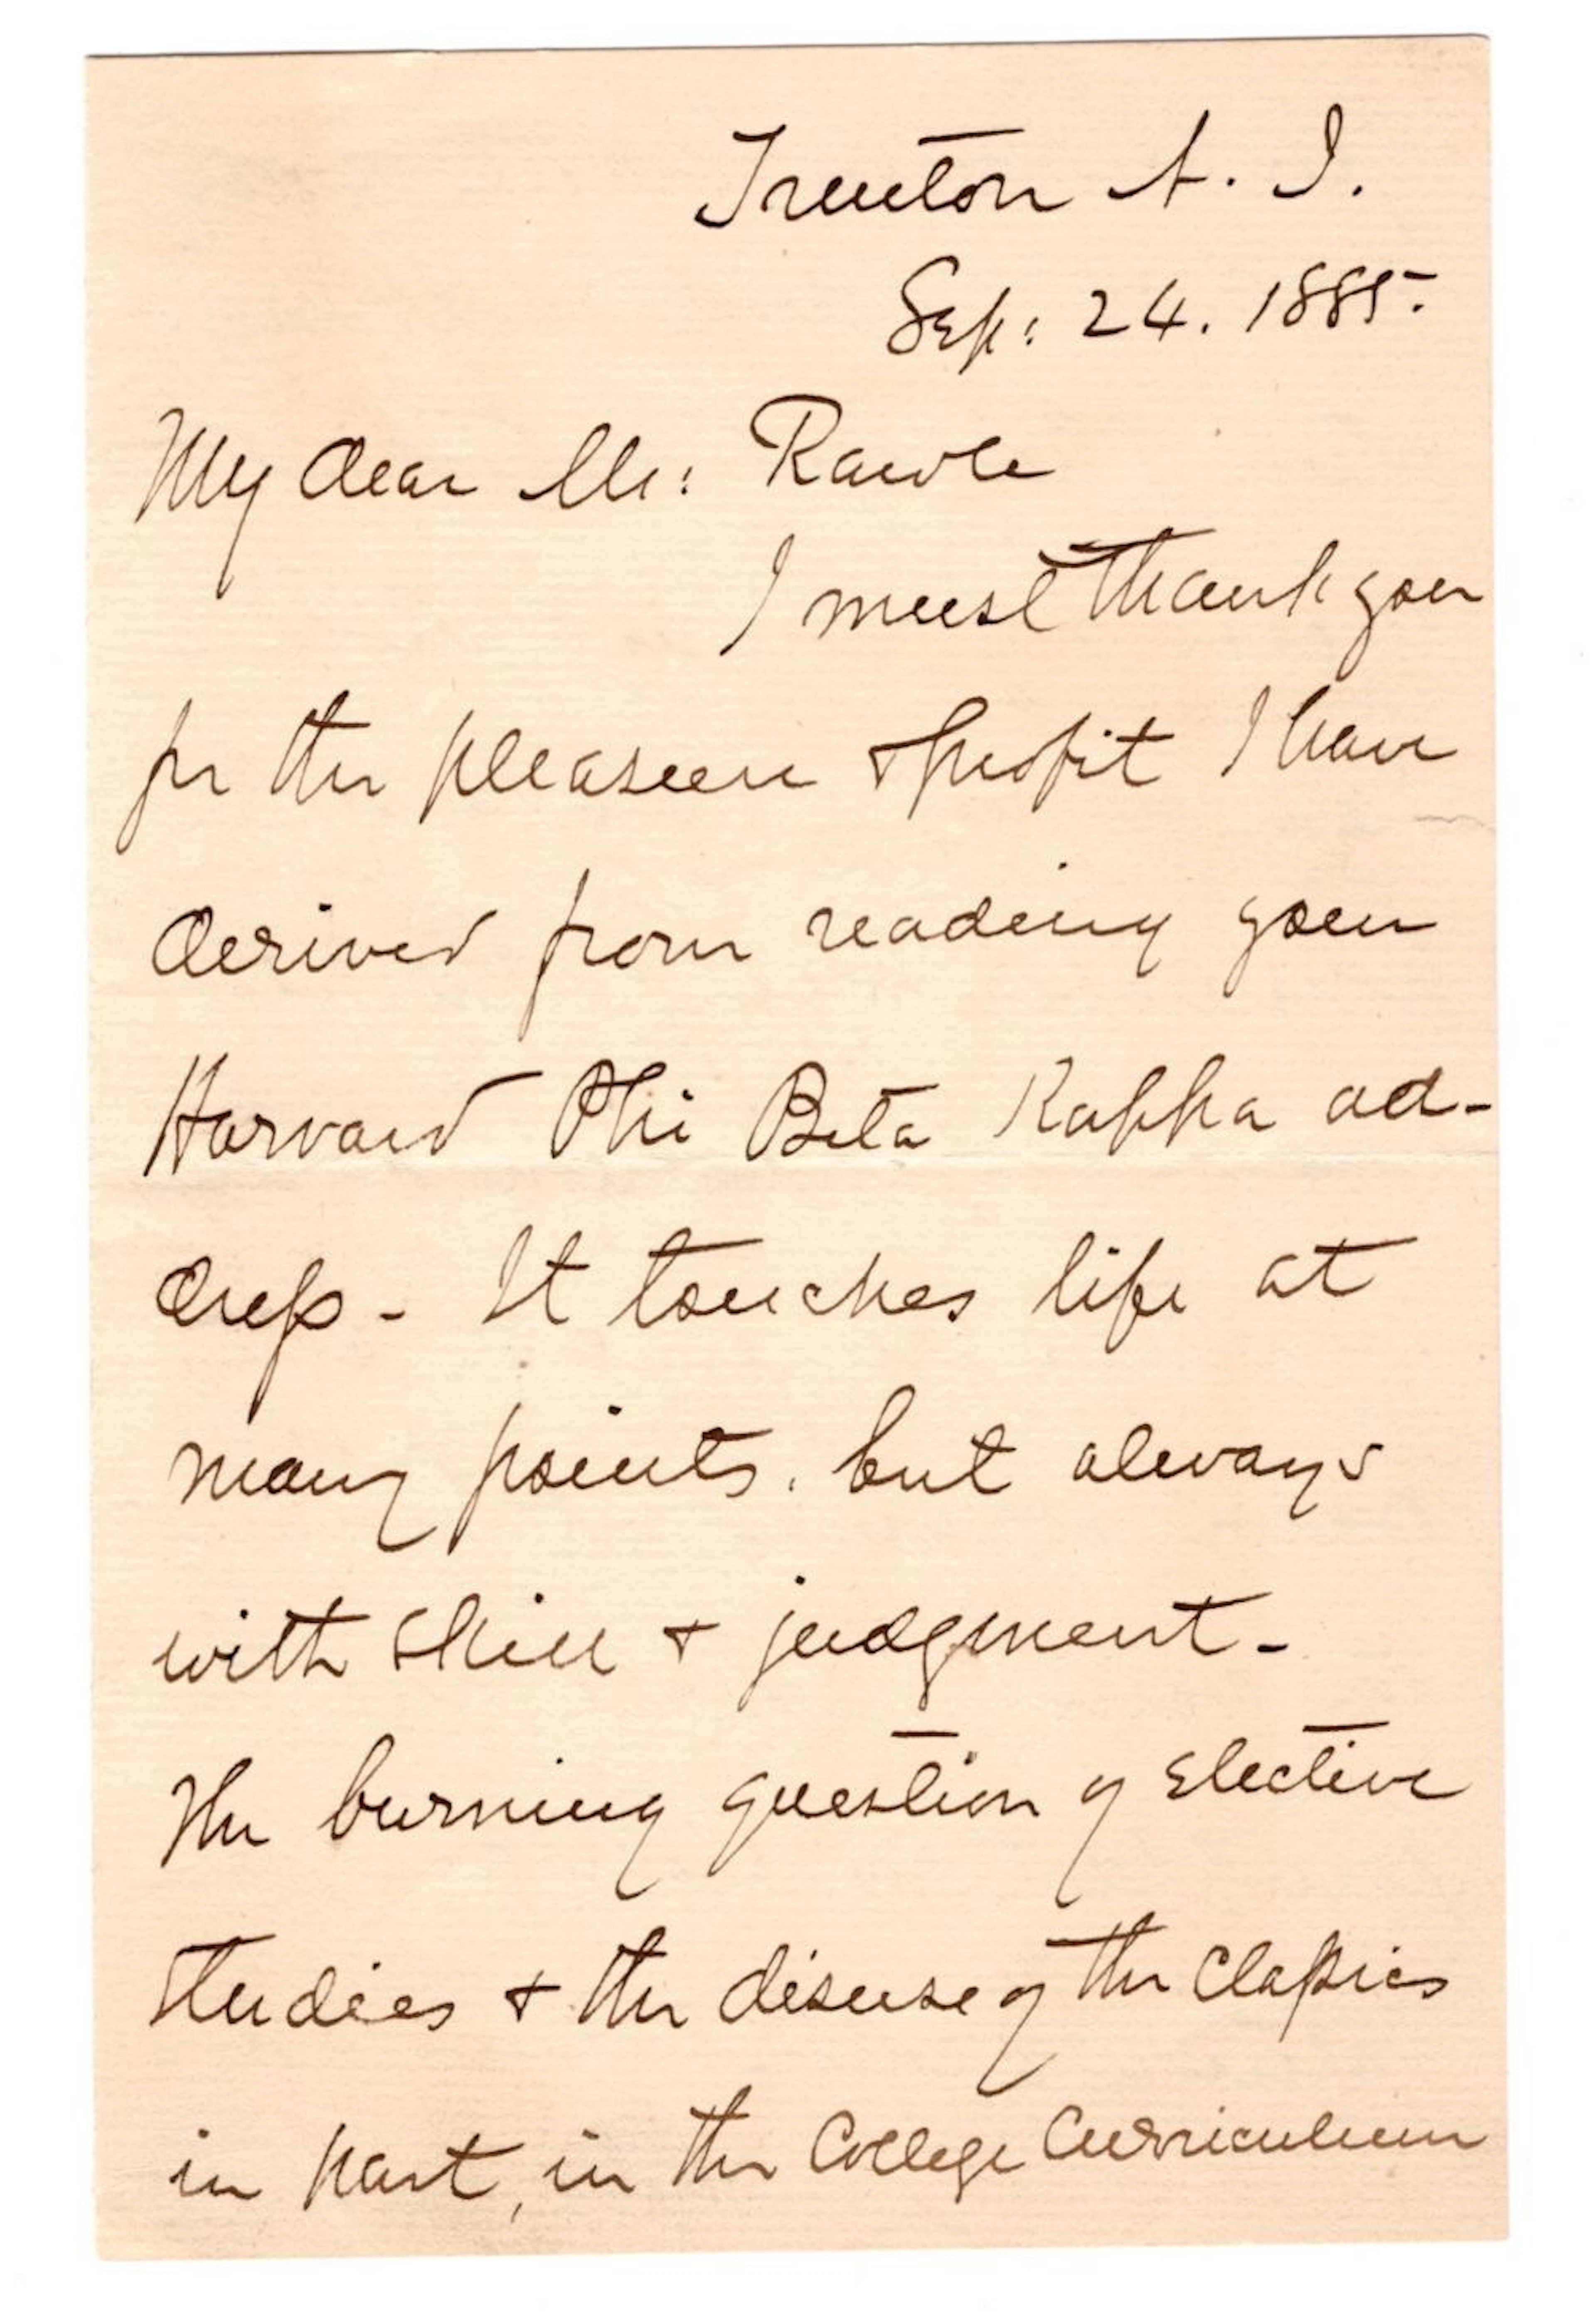 Trenton N. J.
Sep: 24. 1885.
My dear Mr: Rawle
I must thank you
for the pleasure & profit I have
derived from reading your
Harvard Phi Beta Kappa ad-
dress - It touches life at
many points, but always
with skill & judgment -
The burning question of elective
studies & the disuse of the classics
in part, in the College Curriculum